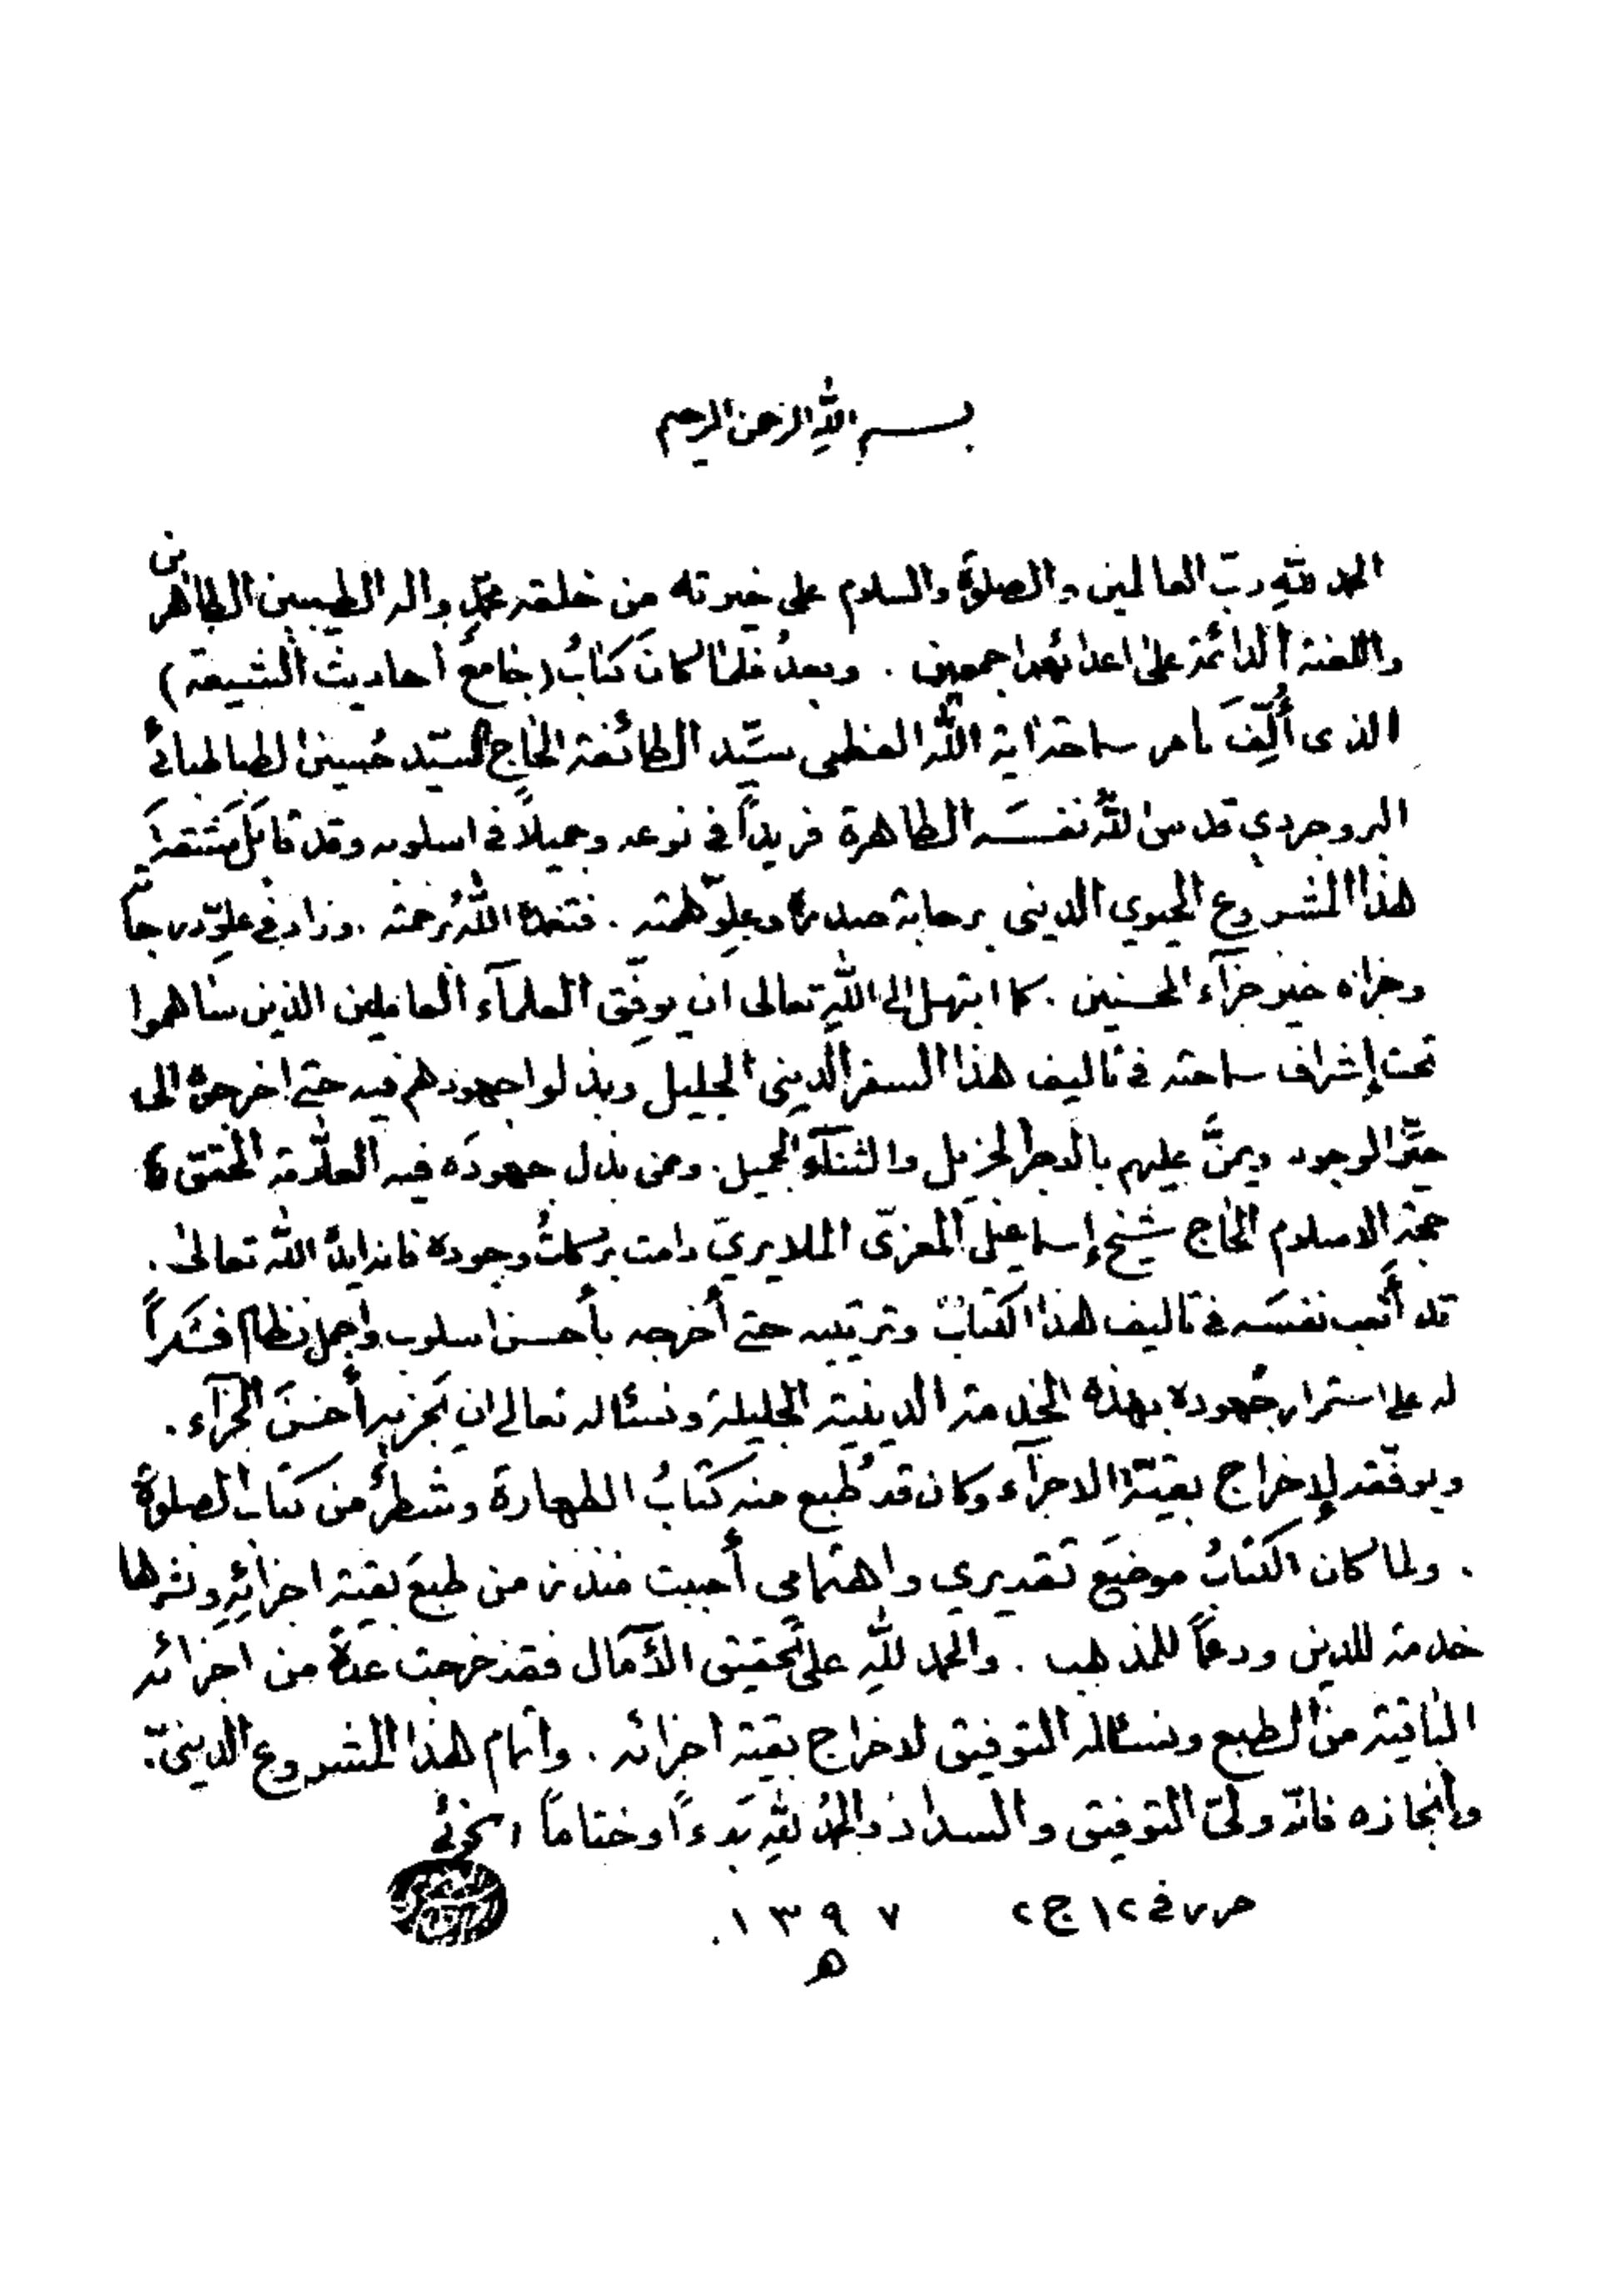 بسم الله الرحمن الرحيم
الحمد للهِ ربّ العالمين والصلوة والسلام على خيرته من خلقه محمّدٍ واله الطيبين الطاهرين
واللعنة الدائمة على اعدائهم اجمعين . وبعدُ فلما كانَ كتابُ (جامعُ احاديث الشيعة)
الذى أُلِّفَ بامر سماحة اية الله العظمى سيّد الطائفة الحاج السيّد حُسين الطباطبائى
البروجردي قدس الله نفسَه الطاهرة فريداً في نوعه وجميلاً في اسلوبه وقد
هذا المشروع الحيوي الدينى برحابة صدره وعلوّ همته . فتغمده الله برحمته . وزاد في علوّ درجاته
وجزاه خير جزآء المحسنين . كما ابتهل الى اللهِ تعالى ان يوفّق العلمآء العاملين الذين ساهموا
تحت إشراف سماحته في تاليف هذا السفر الدينى الجليل وبذلوا جهودهم فيه حتى اخرجوه الى
حيّز الوجود ويمنَّ عليهم بالاجر الجزيل والثنآء الجميل . وممن بذل جهودَه فيه العلّامة المحقق
حجة الاسلام الحاج شيخ إسماعيل المعزّى الملايريّ دامت بركاتُ وجوده فانه ايده الله تعالى .
قد أتعب نفسَه في تاليف هذا الكتاب وترتيبه حتى أخرجه بأحسن اسلوب واجمل نظام فشكراً
له على استمرار جُهوده بهذه الخدمة الدينية الجليلة ونسئاله تعالى ان يجزيه أحسنَ الجزآء .
ويوفّقه لإخراج بقيّة الاجزآء وكان قد طُبع منه كتابُ الطهارة وشطرٌ من كتاب الصلوة
. ولما كان الكتابُ موضعَ تقديري واهتمامى أحببت منذ زمن طبعَ بقية اجزائِه ونشرها
خدمة للدين ودعماً للمذهب . والحمد للهِ على تحقيق الآمال فقد خرجت عدةٌ من اجزائه
الباقية من الطبع ونسئاله التوفيق لاخراج بقية اجزائه . واتمام هذا المشروع الدينيّ .
وانجازه فانّه ولىّ التوفيق والسداد والحمدُ للهِ بَدءاً وختاماً الخوئى
حرر في ١٢ ج ٢ ١٣٩٧ .
ه